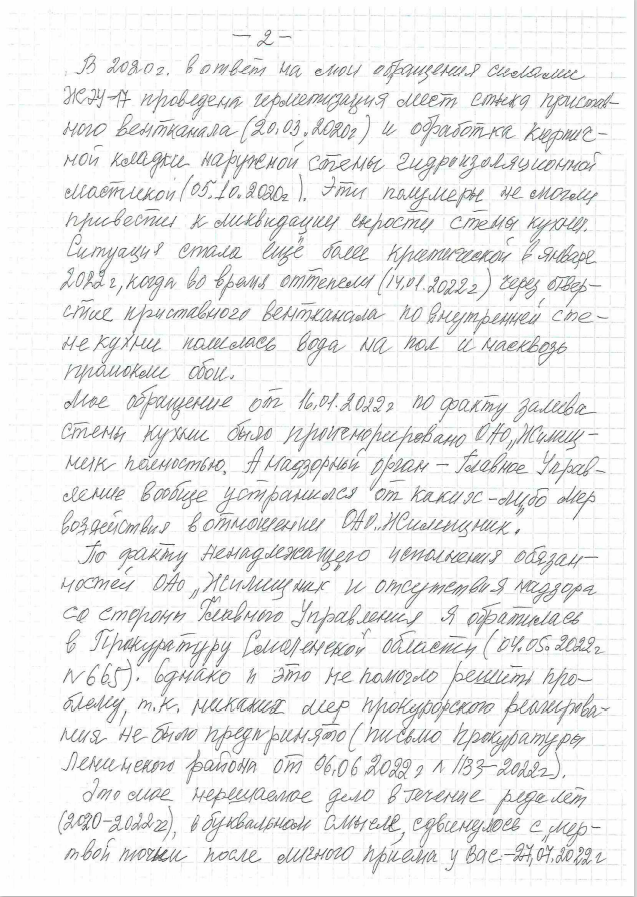 – 2 –
В 2020г. в ответ на мои обращения силами
ЖЭУ-17 проведена герметизация мест стыка пристав-
ного вентканала (20.03.2020г) и обработка кирпич-
ной кладки наружной стены гидроизоляционной
мастикой (05.10.2020г). Эти полумеры не могли
привести к ликвидации сырости стены кухни.
Ситуация стала ещё более критической в январе
2022г, когда во время оттепели (14.01.2022г) через отвер-
стие приставного вентканала по внутренней сте-
не кухни полилась вода на пол и насквозь
промокли обои.
Мое обращение от 16.01.2022г по факту залива
стены кухни было проигнорировано ОАО „Жилищ-
ник полностью. А надзорный орган – Главное Управ-
ление вообще устранился от каких-либо мер
воздействия в отношении ОАО „Жилищник.
По факту ненадлежащего исполнения обязан-
ностей ОАО „Жилищник и отсутствия надзора
со стороны Главного Управления я обратилась
в Прокуратуру Смоленской области (04.05.2022г
№665). Однако и это не помогло решить про-
блему, т.к. никаких мер прокурорского реагирова-
ния не было предпринято (письмо Прокуратуры
Ленинского района от 06.06.2022г № 1133-2022г).
Это мое нерешаемое дело в течение ряда лет
(2020-2022гг), в буквальном смысле, сдвинулось с „мер-
твой точки после личного приема у Вас – 27.07.2022г